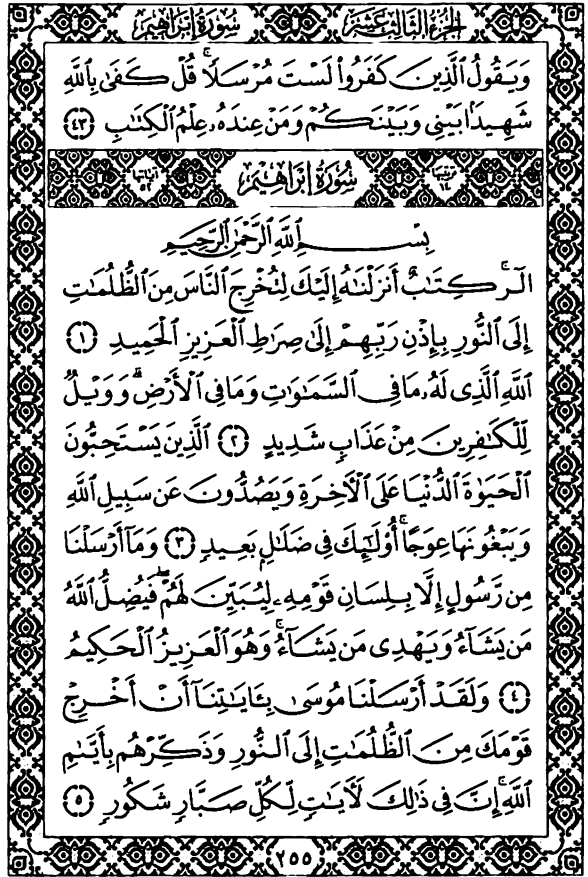 الجزء الثالث عشر سورة إبراهيم
وَيَقُولُ ٱلَّذِينَ كَفَرُوا۟ لَسْتَ مُرْسَلًا ۚ قُلْ كَفَىٰ بِٱللَّهِ
شَهِيدًۢا بَيْنِى وَبَيْنَكُمْ وَمَنْ عِندَهُۥ عِلْمُ ٱلْكِتَٰبِ ٤٣
ترتيبها ١٤ سُورَةُ إِبْرَاهِيمَ آياتها ٥٢
بِسْمِ ٱللَّهِ ٱلرَّحْمَٰنِ ٱلرَّحِيمِ
الٓر ۚ كِتَٰبٌ أَنزَلْنَٰهُ إِلَيْكَ لِتُخْرِجَ ٱلنَّاسَ مِنَ ٱلظُّلُمَٰتِ
إِلَى ٱلنُّورِ بِإِذْنِ رَبِّهِمْ إِلَىٰ صِرَٰطِ ٱلْعَزِيزِ ٱلْحَمِيدِ ١
ٱللَّهِ ٱلَّذِى لَهُۥ مَا فِى ٱلسَّمَٰوَٰتِ وَمَا فِى ٱلْأَرْضِ ۗ وَوَيْلٌ
لِّلْكَٰفِرِينَ مِنْ عَذَابٍ شَدِيدٍ ٢ ٱلَّذِينَ يَسْتَحِبُّونَ
ٱلْحَيَوٰةَ ٱلدُّنْيَا عَلَى ٱلْءَاخِرَةِ وَيَصُدُّونَ عَن سَبِيلِ ٱللَّهِ
وَيَبْغُونَهَا عِوَجًا ۚ أُو۟لَٰٓئِكَ فِى ضَلَٰلٍۭ بَعِيدٍ ٣ وَمَآ أَرْسَلْنَا
مِن رَّسُولٍ إِلَّا بِلِسَانِ قَوْمِهِۦ لِيُبَيِّنَ لَهُمْ ۖ فَيُضِلُّ ٱللَّهُ
مَن يَشَآءُ وَيَهْدِى مَن يَشَآءُ ۚ وَهُوَ ٱلْعَزِيزُ ٱلْحَكِيمُ
٤ وَلَقَدْ أَرْسَلْنَا مُوسَىٰ بِـَٔايَٰتِنَآ أَنْ أَخْرِجْ
قَوْمَكَ مِنَ ٱلظُّلُمَٰتِ إِلَى ٱلنُّورِ وَذَكِّرْهُم بِأَيَّىٰمِ
ٱللَّهِ ۚ إِنَّ فِى ذَٰلِكَ لَءَايَٰتٍ لِّكُلِّ صَبَّارٍ شَكُورٍ ٥
٢٥٥